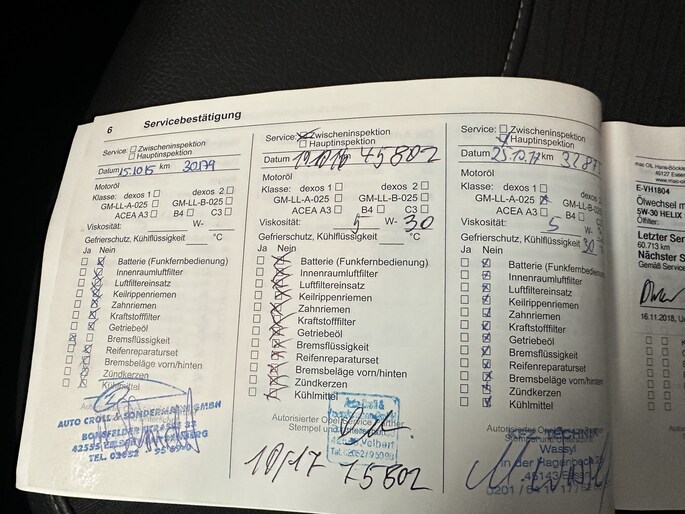 6 Servicebestätigung
Service: Zwischeninspektion
Hauptinspektion
Datum 15.10.15 km 30179
Motoröl
Klasse: dexos 1 dexos 2
GM-LL-A-025 GM-LL-B-025
ACEA A3 B4 C3
Viskosität: W-
Gefrierschutz, Kühlflüssigkeit °C
Ja Nein
Batterie (Funkfernbedienung)
Innenraumluftfilter
Luftfiltereinsatz
Keilrippenriemen
Zahnriemen
Kraftstofffilter
Getriebeöl
Bremsflüssigkeit
Reifenreparaturset
Bremsbeläge vorn/hinten
Zündkerzen
Kühlmittel
AUTO CROLL & SONDERMANN GMBH
TEL. 02052
Service: Zwischeninspektion
Hauptinspektion
Datum 75802
Motoröl
Klasse: dexos 1 dexos 2
GM-LL-A-025 GM-LL-B-025
ACEA A3 B4 C3
Viskosität: 5 W- 30
Gefrierschutz, Kühlflüssigkeit °C
Ja Nein
Batterie (Funkfernbedienung)
Innenraumluftfilter
Luftfiltereinsatz
Keilrippenriemen
Zahnriemen
Kraftstofffilter
Getriebeöl
Bremsflüssigkeit
Reifenreparaturset
Bremsbeläge vorn/hinten
Zündkerzen
Kühlmittel
Autorisierter Opel Service Partner
Stempel und Unterschrift
Velbert
10/17 75802
Service: Zwischeninspektion
Hauptinspektion
Datum km
Motoröl
Klasse: dexos 1
GM-LL-A-025
ACEA A3 B4
Viskosität: 5
Gefrierschutz, Kühlflüssigkeit 30
Ja Nein
Batterie (Funkfernbedienung)
Innenraumluftfilter
Luftfiltereinsatz
Keilrippenriemen
Zahnriemen
Kraftstofffilter
Getriebeöl
Bremsflüssigkeit
Reifenreparaturset
Bremsbeläge vorn/hinten
Zündkerzen
Kühlmittel
TECHNIK
Wassyl
in der Hagenbeck
45143 Essen
mac OIL Hans-Böckle
45127 Essen
E-VH1804
Ölwechsel m
5W-30 HELIX
Ölfilter:
Letzter Ser
60.713 km
Nächster S
Gemäß Service
16.11.2018,